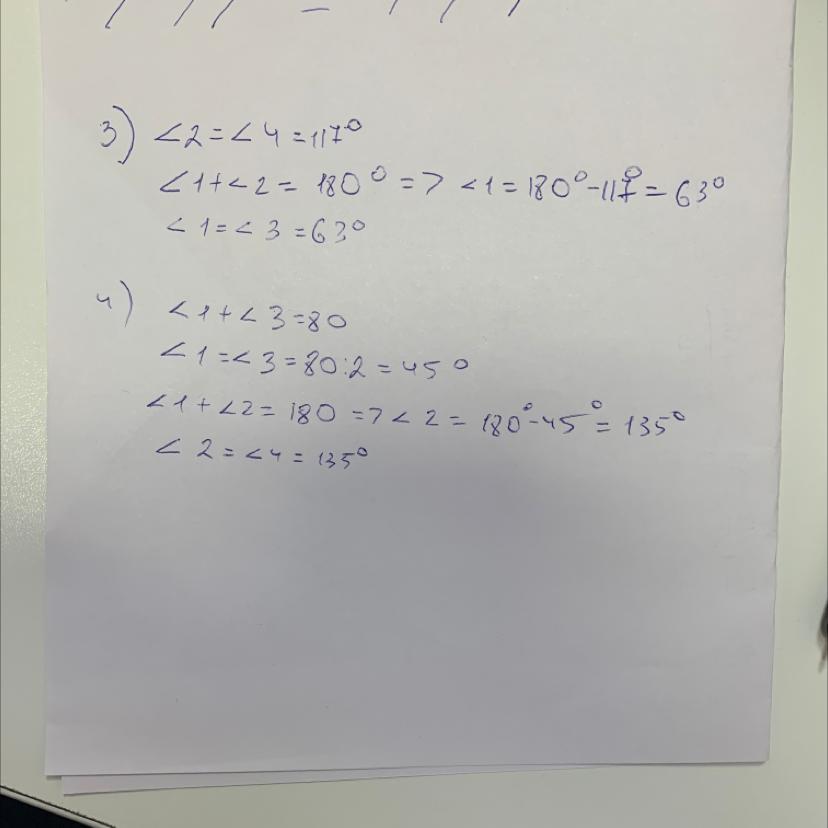 3) ∠2=∠4=117°
∠1+∠2= 180°=7 ∠1=180°-117°=63°
∠1=∠3=63°
4) ∠1+∠3=80
∠1=∠3=80:2=45°
∠1+∠2=180=7∠2= 180°-45°=135°
∠2=∠4=135°